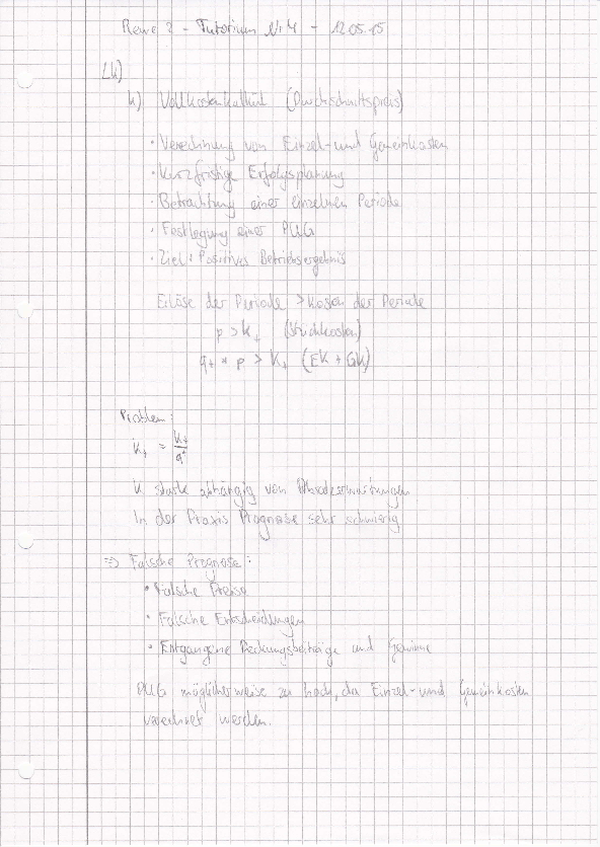 Rewe 2 - Tutorium Nr. 4 - 12.05.15
k) Vollkostenkalkül (Durchschnittspreis)
· Verrechnung von Einzel- und Gemeinkosten
· Kurzfristige Erfolgsplanung
· Betrachtung einer einzelnen Periode
· Festlegung einer PUG
· Ziel: Positives Betriebsergebnis
Erlöse der Periode > Kosten der Periode
p > k₊ (Stückkosten)
q₊ * p > K₊ (EK + GK)
Problem:
k₊ = K₊ / q₊
K stark abhängig von
In der Praxis Prognose sehr schwierig
=> Falsche Prognose:
· Falsche Preise
· Falsche Entscheidungen
· Entgangene Deckungsbeiträge und Gewinne
PUG möglicherweise zu hoch, da Einzel- und Gemeinkosten
verrechnet werden.